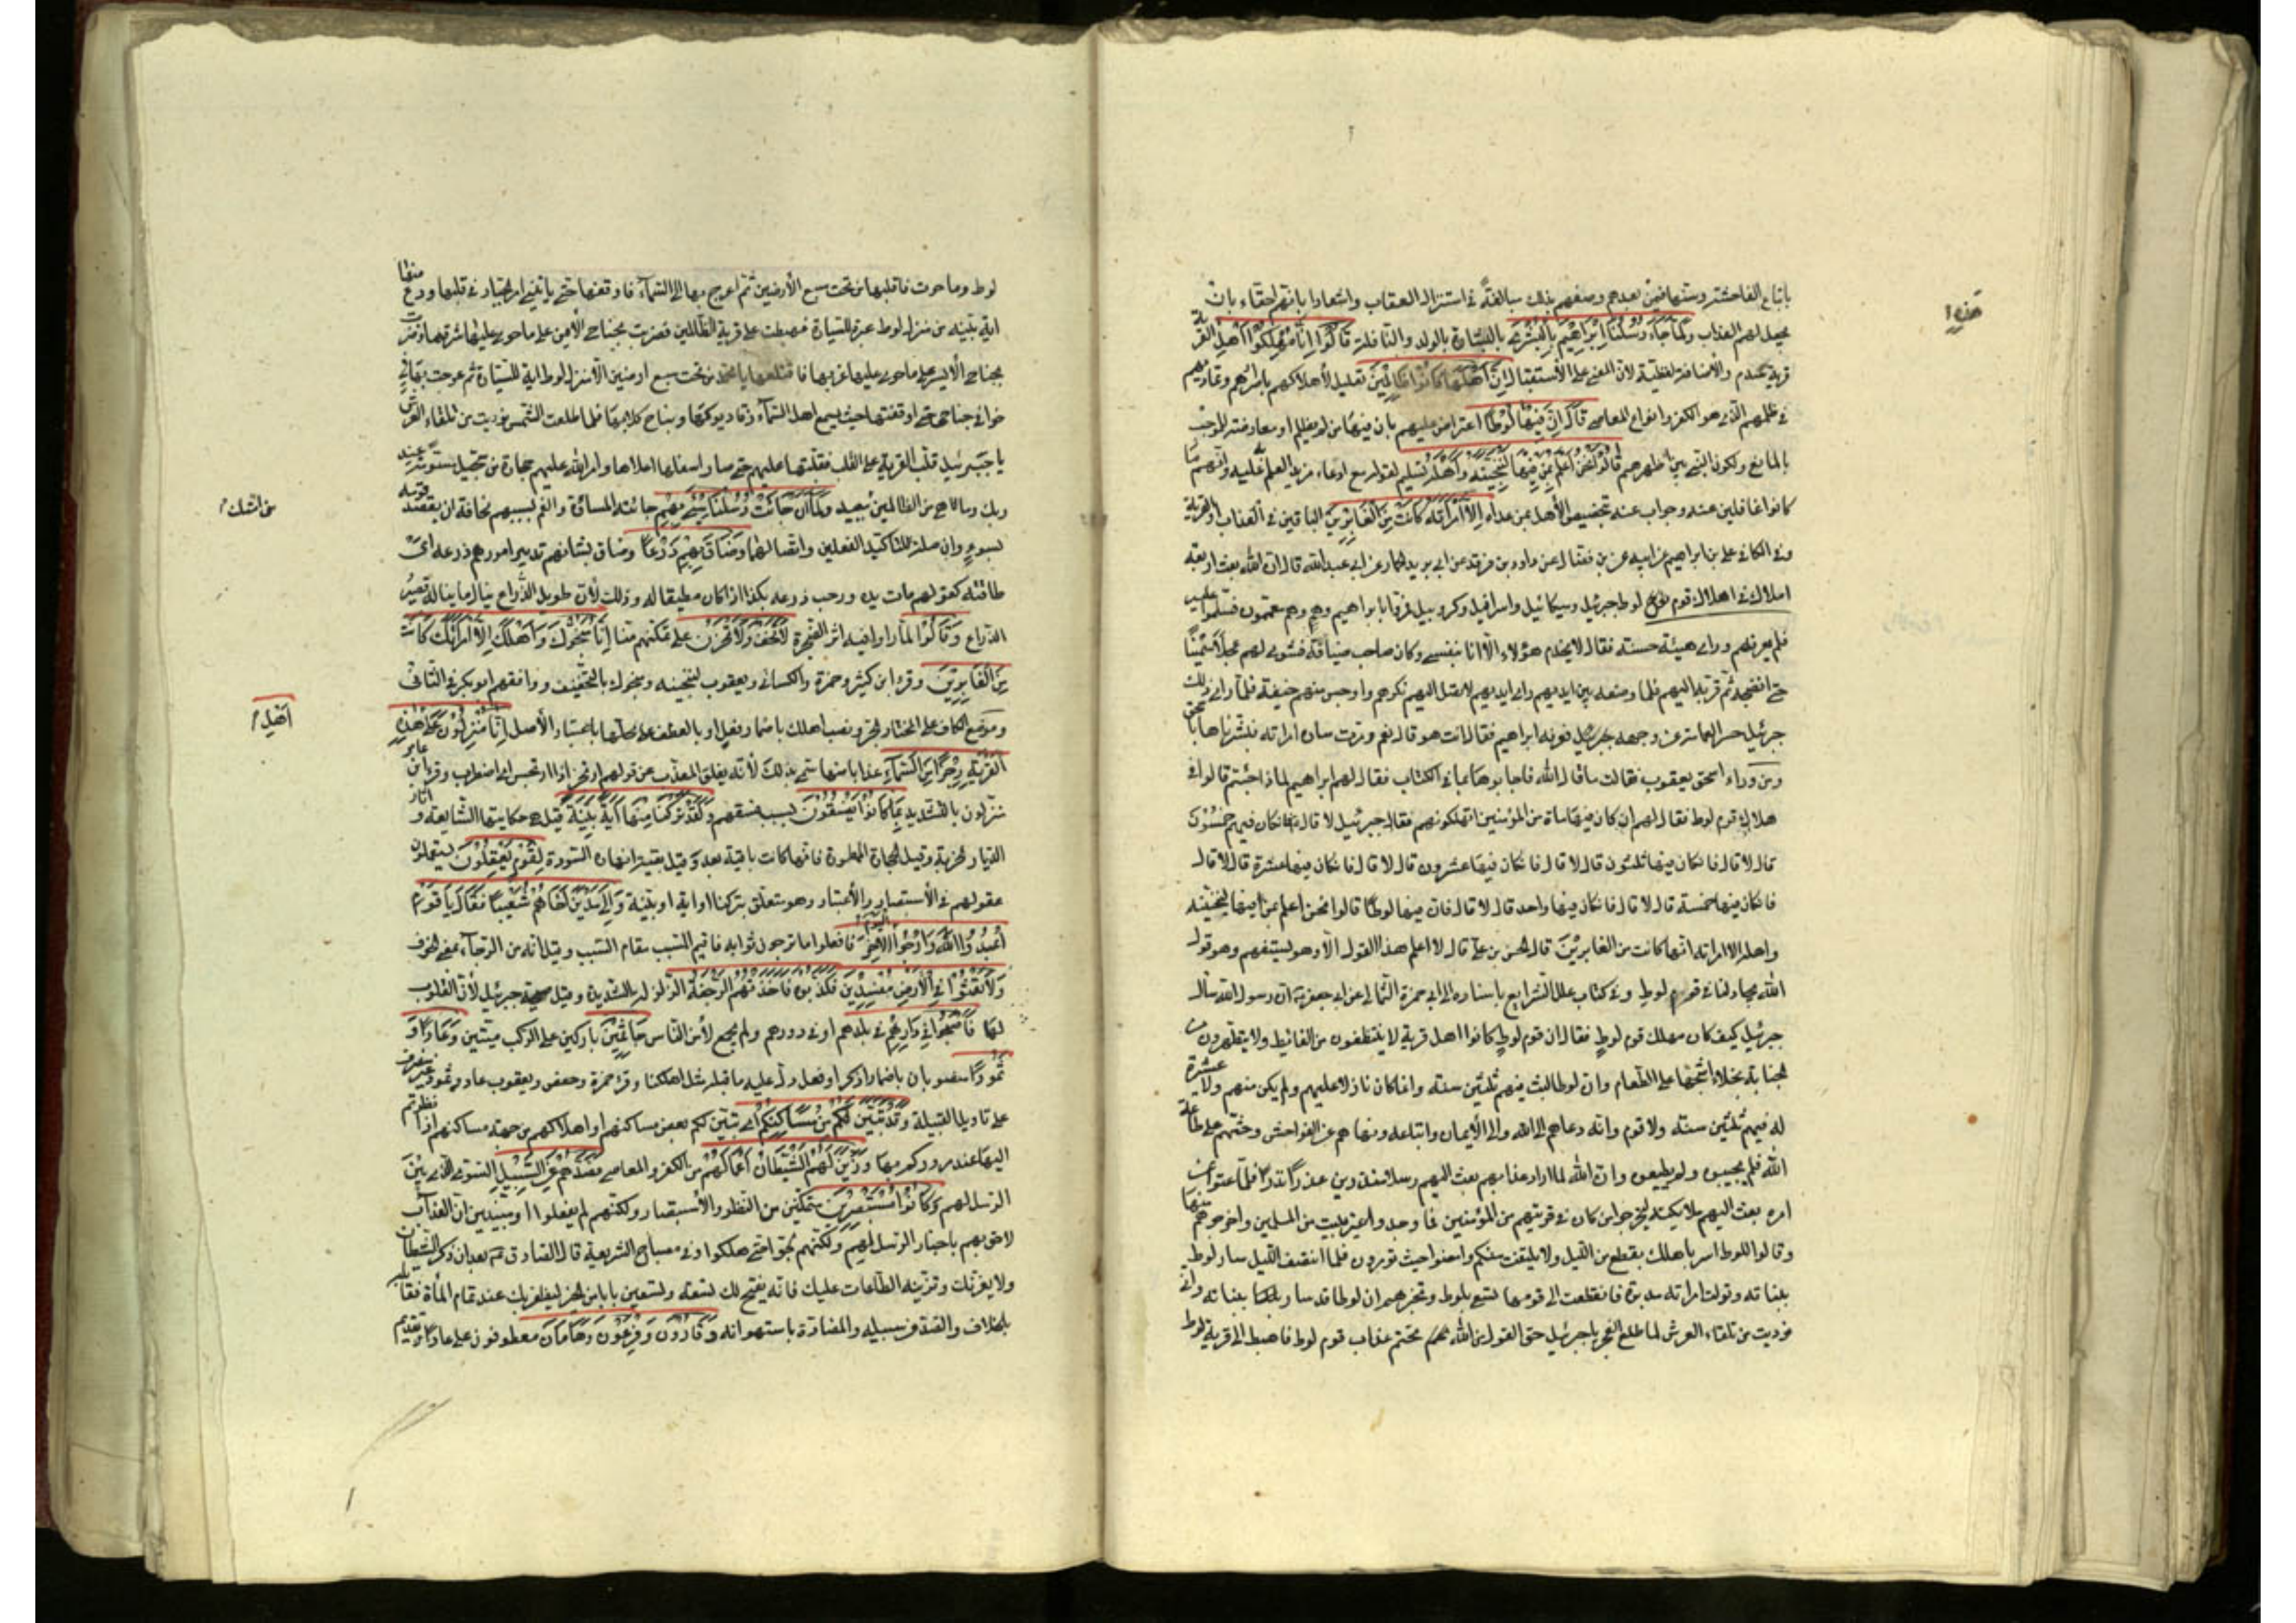 باتباع الفاحشة وستهافين بعدهم وصفهم بذلك مبالغة في استنزال العقاب واشعارا بانهم احقاء بان
هذه
يجعل لهم العذاب وَلَمَّا جَاءَتْ رُسُلُنَا اِبْرَاهِيْمَ بِالْبُشْرَى بالبشارة بالولد والنافلة قَالُوْا اِنَّا مُهْلِكُوْا اَهْلِ القرية
قرية سدوم والاضافة لفظية لان المعنى على الاستقبال اِنَّ اَهْلَهَا كَانُوْا ظَالِمِيْنَ تعليل لأهلاكهم باصرارهم وتماديهم
في ظلمهم الذي هو الكفر وانواع المعاصي قَالَ اِنَّ فِيْهَا لُوْطًا اعتراض عليهم بان فيها من لم يظلم او معارضة للموجب
بالمانع وهو كون النبي بين اظهرهم قَالُوْا نَحْنُ اَعْلَمُ بِمَنْ فِيْهَا لَنُنَجِّيَنَّهُ وَاَهْلَهُ تسليم لقوله مع ادعاء مزيد العلم عليه وانهم ما
كانوا غافلين عنه وجواب عنه بتخصيص الأهل بمن عداه اِلَّا امْرَاَتَهُ كَانَتْ مِنَ الْغَابِرِيْنَ الباقين في العذاب او القرية
وفي الكافي علي بن ابراهيم عن ابيه عن بن فضال عن داود بن فرقد عن ابي يزيد الحمار عن ابي عبدالله قال ان الله بعث اربعة
املاك في اهلاك قوم لوط جبرئيل وميكائيل واسرافيل وكروبيل فمروا بابراهيم وهم معتمون فسلموا عليه
فلم يعرفهم وراى هيئة حسنة فقال لا يخدم هؤلاء الا انا بنفسي وكان صاحب ضيافة فشوى لهم عجلا سمينًا
حتى انضجه ثم قربه اليهم فلما وضعه بين ايديهم راى ايديهم لا تصل اليهم نكرهم واوجس منهم خيفة فلما راى ذلك
جبرئيل حسر العمامة عن وجهه فعرفه ابراهيم فقال انت هو قال نعم ومرت سارة امراته فبشرناها باسحق
ومن وراء اسحق يعقوب فقالت ما قال الله فاجابوها بما في الكتاب فقال لهم ابراهيم لماذا جئتم قالوا في
هلاك قوم لوط فقال لهم ان كان فيها مائة من المؤمنين اتهلكونهم فقال جبرئيل لا قال فان كان فيهم خمسون
قال لا قال فان كان فيها ثلثون قال لا قال فان كان فيها عشرون قال لا قال فان كان فيها عشرة قال لا قال
فان كان فيها خمسة قال لا قال فان كان فيها واحد قال لا قال فان فيها لوطًا قالوا نحن اعلم بمن فيها لننجينه
واهله الا امراته انها كانت من الغابرين قال الحسن بن علي قال لا اعلم هذا القول الا وهو يستبقيهم وهو قول
الله يجادلنا في قوم لوط وفي كتاب علل الشرايع باسناده الى ابي حمزة الثمالي عن ابي جعفر ان رسول الله سال
جبرئيل كيف كان مهلك قوم لوط فقال ان قوم لوط كانوا اهل قرية لا يتنظفون من الغائط ولا يتطهرون من
الجنابة بخلاء اشحاء على الطعام وان لوطا لبث فيهم ثلثين سنة وانما كان نازلا عليهم ولم يكن منهم ولا عشيرة
له فيهم ثلثين سنة ولا قوم وانه دعاهم الى الله والى الأيمان واتباعه ونهاهم عن الفواحش وحثهم على طاعة
الله فلم يجيبوه ولم يطيعوه وان الله لما اراد عذابهم بعث اليهم رسلا منذرين عذرًا نذرًا فلما عتوا عن
امره بعث اليهم ملائكة ليخرجوا من كان في قريتهم من المؤمنين فما وجدوا غير بيت من المسلمين واخرجوهم منها
وقالوا للوط اسر باهلك بقطع من الليل ولا يلتفت منكم وامضوا حيث تؤمرون فلما انتصف الليل سار لوط
ببناته وتولت امراته مدبرة فانقطعت الى قومها تسعى بلوط وتخبرهم ان لوطا قد سار ببناته واني
نوديت من تلقاء العرش لما طلع الفجر يا جبرئيل حق القول من الله تحتم عذاب قوم لوط فاهبط الى قرية لوط
لوط وما حوت فاقلبها من تحت سبع الأرضين ثم اعرج بها الى السماء فاوقفها حتى ياتيك امر الجبار في قلبها ودع منها
اية بينة من منزل لوط عبرة للسيارة فهبطت على قرية الظالمين فضربت بجناحي الأيمن على ما حوى عليها شرقيها وضربت
بجناحي الأيسر على ما حوى عليها غربيها فاقتلعتها يا محمد من تحت سبع ارضين الا منزل لوط اية للسيارة ثم عرجت بها في
خوافي جناحي حتى اوقفتها حيث يسمع اهل السماء زقاء ديوكها ونباح كلابها فلما طلعت الشمس نوديت من تلقاء العرش
يا جبرئيل قلب القرية على القوم فقلبتها عليهم حتى صار اسفلها اعلاها وامطر الله عليهم حجارة من سجيل مسومة عند
ربك وما هي من الظالمين ببعيد وَلَمَّا اَنْ جَائَتْ رُسُلُنَا سِيْءَ بِهِمْ جائته المساءة والغم بسببهم مخافة ان يقصدهم قومه
من الشك
بسوء وان صلة لتاكيد الفعلين واتصالهما وَضَاقَ بِهِمْ ذَرْعًا وضاق بشانهم تدبير امرهم ذرعه اى
طاقته كقولهم ضاقت يده ورحب ذرعه بكذا اذا كان مطيقا له وذلك لأن طويل الذراع ينال ما يناله قصير
الذراع وَقَالُوْا لما راوا فيه اثر الضجرة لَا تَخَفْ وَلَا تَحْزَنْ على تمكنهم منا اِنَّا مُنَجُّوْكَ وَاَهْلَكَ اِلَّا امْرَاَتَكَ كَانَتْ
مِنَ الْغَابِرِيْنَ وقرء ابن كثير وحمزة والكسائي ويعقوب لننجينه ومنجوك بالتخفيف ووافقهم ابو بكر في الثاني
وموضع الكاف على المختار الجر ونصب اهلك باضمار فعل او بالعطف على محلها باعتبار الأصل اِنَّا مُنْزِلُوْنَ عَلٰى هٰذِهِ
اَهْلِ
الْقَرْيَةِ رِجْزًا مِنَ السَّمَاءِ عذابا منها سمي بذلك لأنه يقلق المعذب من قولهم ارتجز اذا ارتجس اى اضطرب وقرء ابن عامر
منزلون بالتشديد بِمَا كَانُوْا يَفْسُقُوْنَ بسبب فسقهم وَلَقَدْ تَرَكْنَا مِنْهَا اٰيَةً بَيِّنَةً قيل هي حكايتها الشايعة او اثار
الديار الخربة وقيل الحجارة الممطورة فانها كانت باقية بعد وقيل بقية انهارها المسودة لِقَوْمٍ يَعْقِلُوْنَ يستعملون
عقولهم في الأستبصار والأعتبار وهو متعلق بتركنا او اية او بينة وَاِلٰى مَدْيَنَ اَخَاهُمْ شُعَيْبًا فَقَالَ يَا قَوْمِ
اعْبُدُوا اللّٰهَ وَارْجُوا الْيَوْمَ الْاٰخِرَ فافعلوا ما ترجون ثوابه فاقيم المسبب مقام السبب وقيل انه من الرجاء بمعنى الخوف
وَلَا تَعْثَوْا فِي الْاَرْضِ مُفْسِدِيْنَ فَكَذَّبُوْهُ فَاَخَذَتْهُمُ الرَّجْفَةُ الزلزلة الشديدة وقيل صيحة جبرئيل لأن القلوب
لها فَاَصْبَحُوْا فِي دَارِهِمْ في بلدهم او في دورهم ولم يجمع لأمن اللبس جَاثِمِيْنَ باركين على الركب ميتين وَعَادًا وَ
ثَمُوْدًا منصوبان باضمار اذكر او فعل دل عليه ما قبله مثل اهلكنا وقرء حمزة وحفص ويعقوب عاد وثمود غير منصرف
على تاويل القبيلة وَقَدْ تَبَيَّنَ لَكُمْ مِنْ مَسَاكِنِهِمْ اى تبين لكم بعض مساكنهم او اهلاكهم من جهة مساكنهم اذا نظرتم
اليها عند مروركم بها وَزَيَّنَ لَهُمُ الشَّيْطَانُ اَعْمَالَهُمْ من الكفر والمعاصي فَصَدَّهُمْ عَنِ السَّبِيْلِ السوى الذي بين
الرسل لهم وَكَانُوْا مُسْتَبْصِرِيْنَ متمكنين من النظر والأستبصار ولكنهم لم يفعلوا او متبينين ان العذاب
لاحق بهم باخبار الرسل لهم ولكنهم لجوا حتى هلكوا وفي مصباح الشريعة قال الصادق بعد ان ذكر الشيطان
ولا يغرنك وتزيينه الطاعات عليك فانه يفتح لك تسعة وتسعين بابا من الخير ليظفر بك عند تمام المأة فقابله
بالخلاف والصد عن سبيله والمضادة باستهوائه وَقَارُوْنَ وَفِرْعَوْنَ وَهَامَانَ معطوفون على عادًا وتقديم